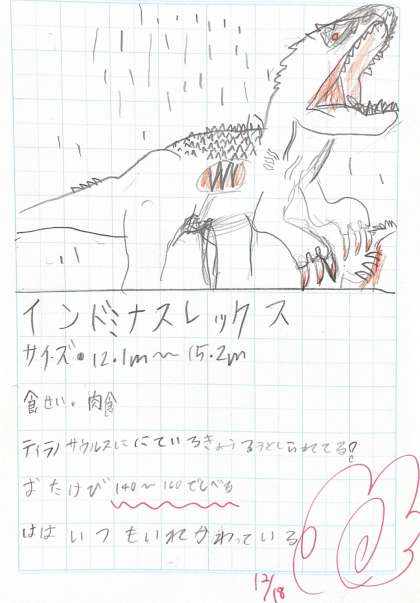 インドミナスレックス
サイズ・12.1m〜15.2m
食せい・肉食
ティラノサウルスににているきょうりゅうとしられてる!
おたけび 140〜160でしべる
はは いつもいれかわっている
12/18